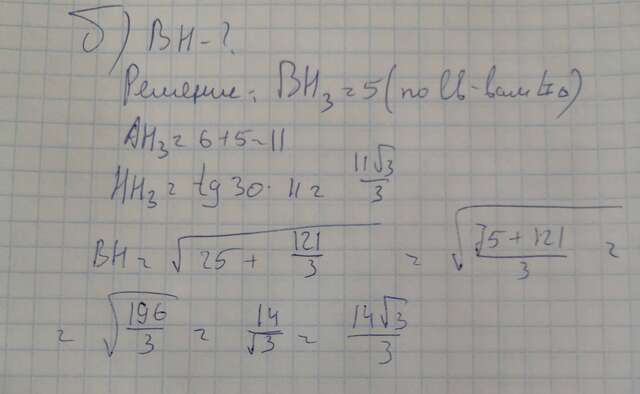 б) BH-?
Решение: BH₃=5 (по св-вам
AH₃=6+5=11
HH₃= tg 30·11= 11√3/3
BH= √(25+121/3) = √((75+121)/3) =
= √(196/3) = 14/√3 = 14√3/3